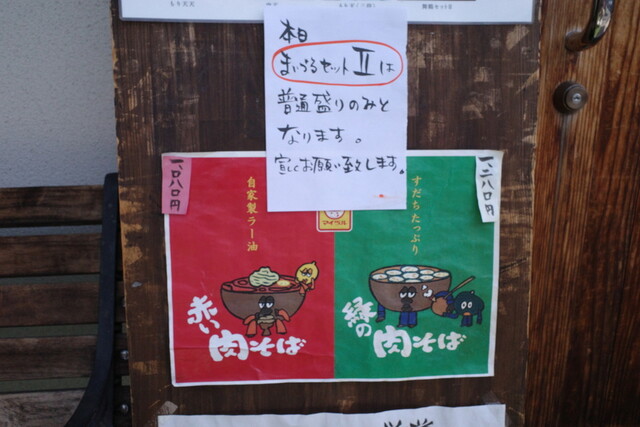 本日
まいづるセットⅡは
普通盛りのみと
なります。
宜しくお願い致します。
一、〇八〇円
自家製ラー油
マイヅル
すだちたっぷり
一二八〇円
赤い
肉そば
緑の
肉そば